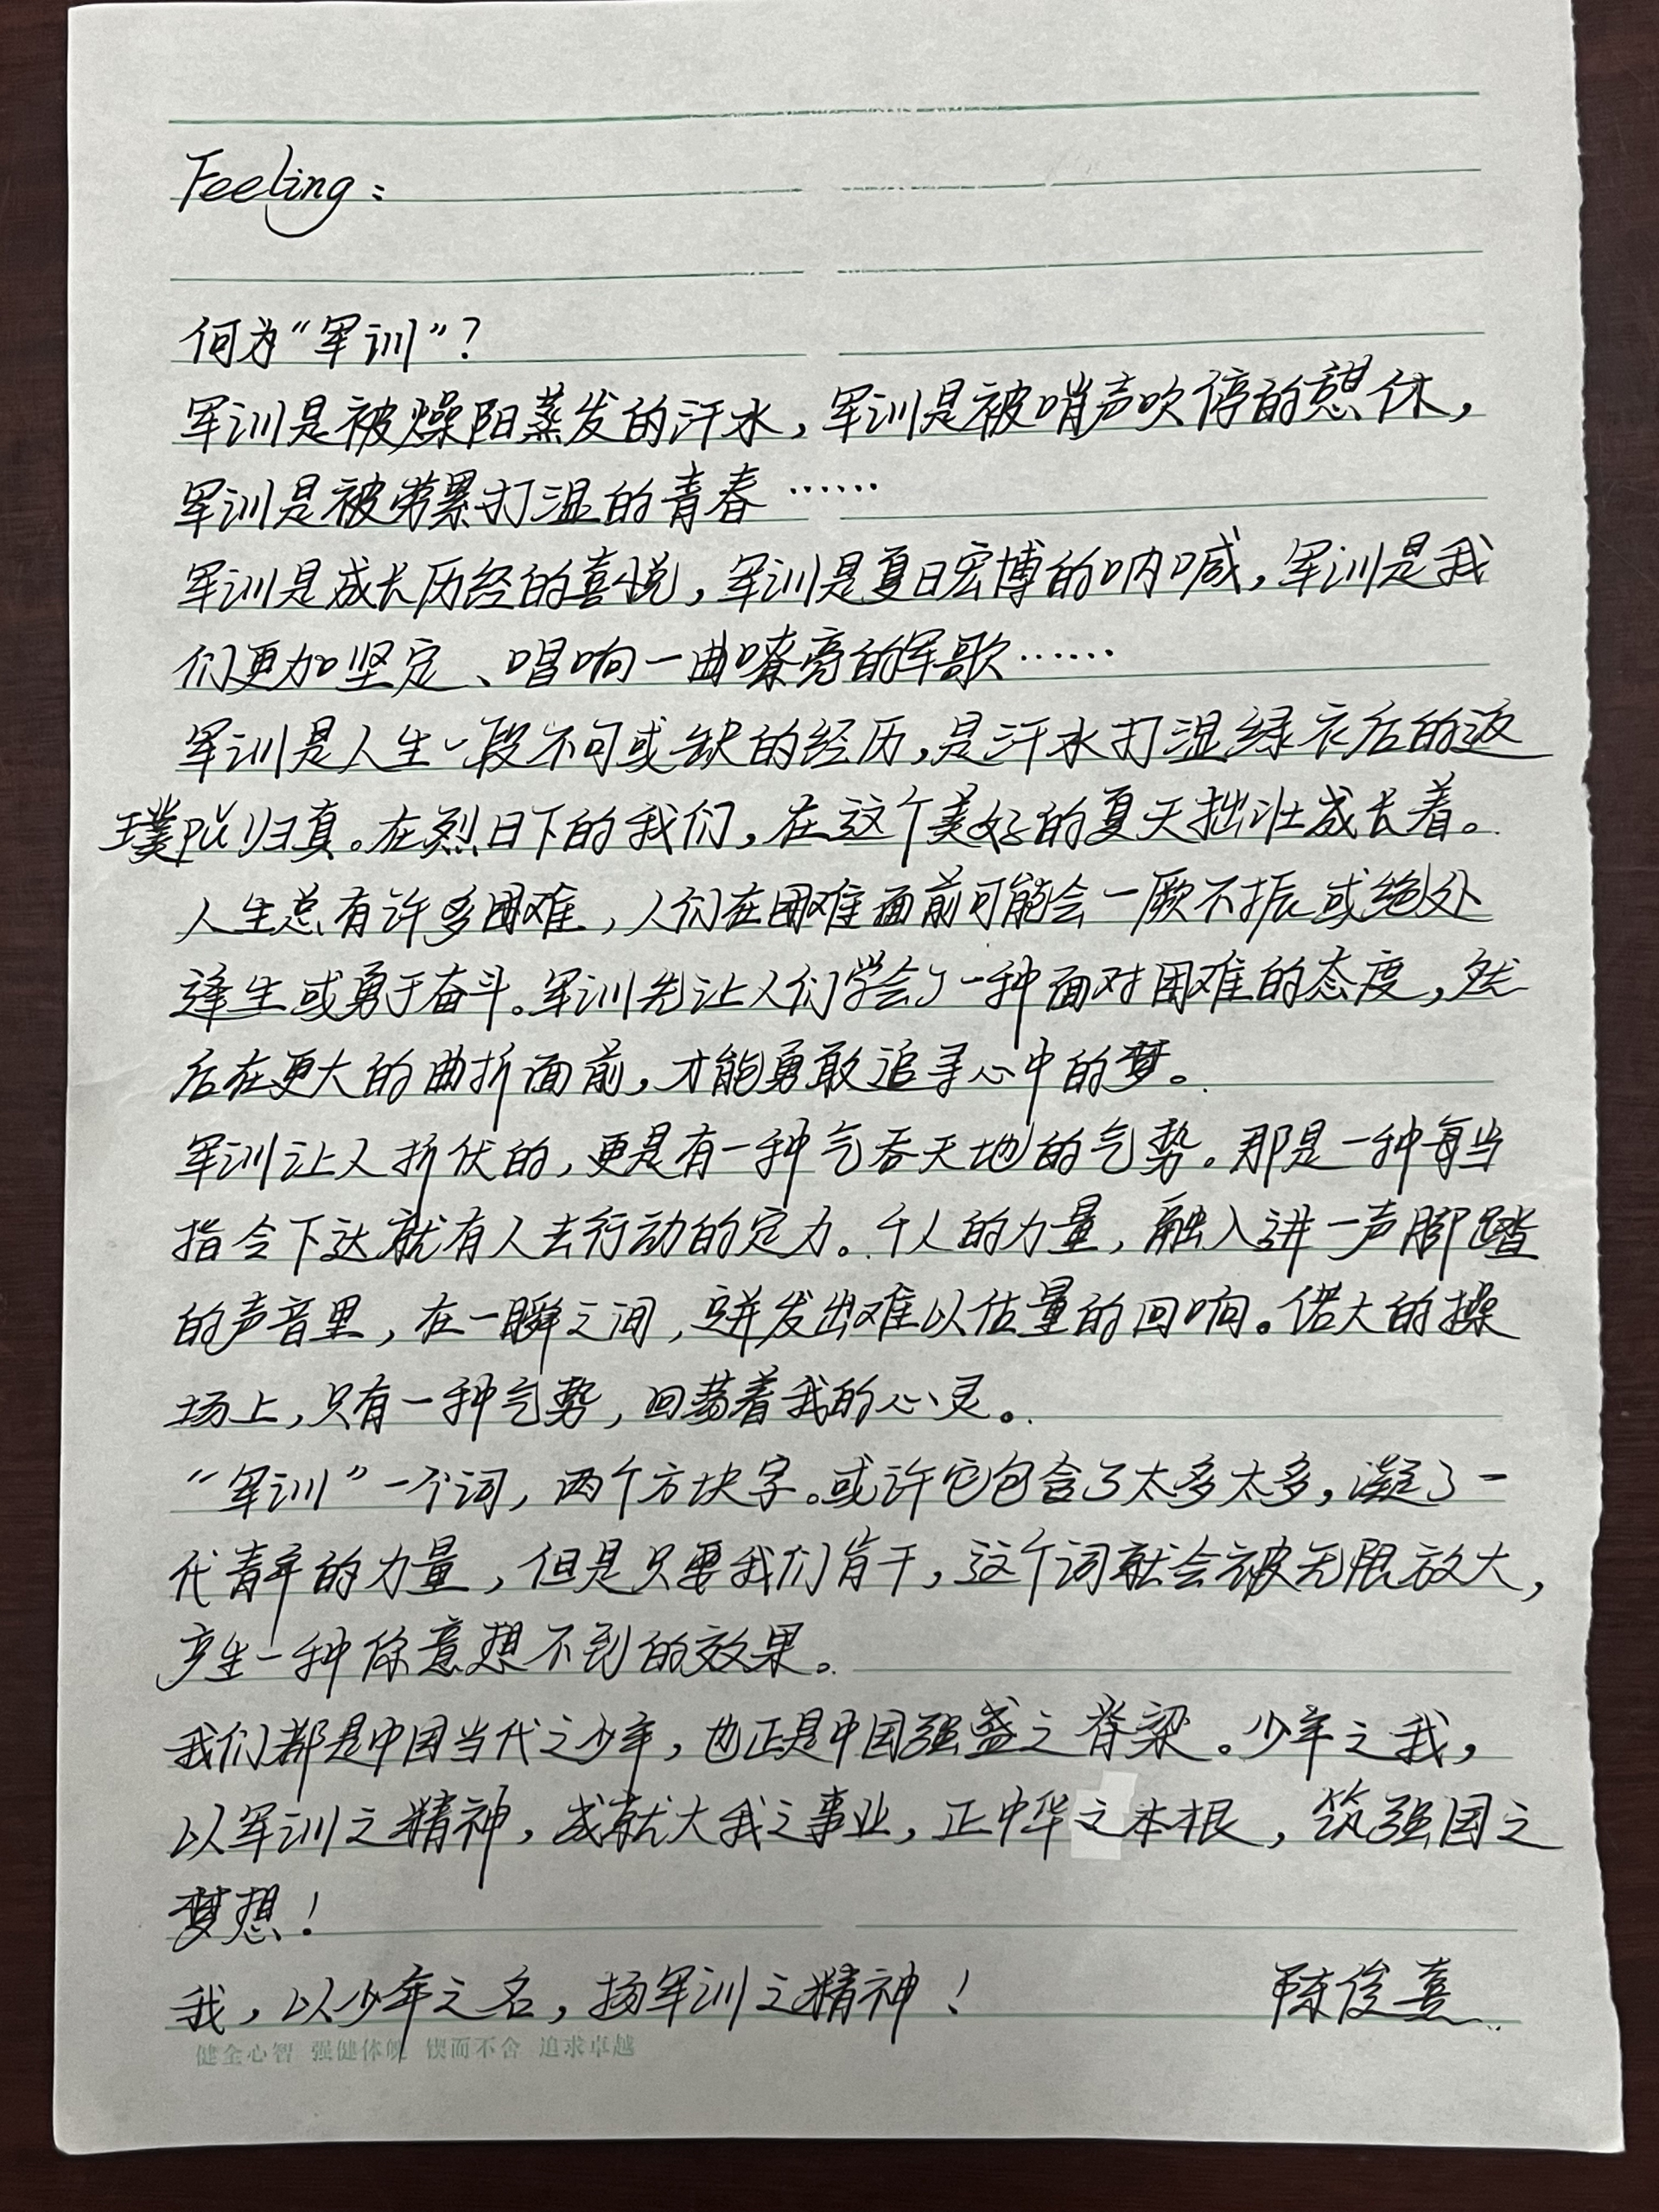 Feeling：
何为“军训”？
军训是被燥阳蒸发的汗水，军训是被哨声吹停的憩休，
军训是被劳累打湿的青春……
军训是成长历经的喜悦，军训是夏日宏博的呐喊，军训是我
们更加坚定、唱响一曲嘹亮的军歌……
军训是人生一段不可或缺的经历，是汗水打湿绿衣后的返
璞归真。在烈日下的我们，在这个美好的夏天拙壮成长着。
人生总有许多困难，人们在困难面前可能会一厥不振或绝处
逢生或勇于奋斗。军训先让人们学会了一种面对困难的态度，然
后在更大的曲折面前，才能勇敢追寻心中的梦。
军训让人折伏的，更是有一种气吞天地的气势。那是一种每当
指令下达就有人去行动的定力。千人的力量，融入进一声脚踏
的声音里，在一瞬之间，迸发出难以估量的回响。偌大的操
场上，只有一种气势，回荡着我的心灵。
“军训”一个词，两个方块字。或许它包含了太多太多，凝了一
代青年的力量，但是只要我们肯干，这个词就会被无限放大，
产生一种你意想不到的效果。
我们都是中国当代之少年，也正是中国强盛之脊梁。少年之我，
以军训之精神，成就大我之事业，正中华之本根，筑强国之
梦想！
我，以少年之名，扬军训之精神！ 陈俊熹
健全心智 强健体魄 锲而不舍 追求卓越